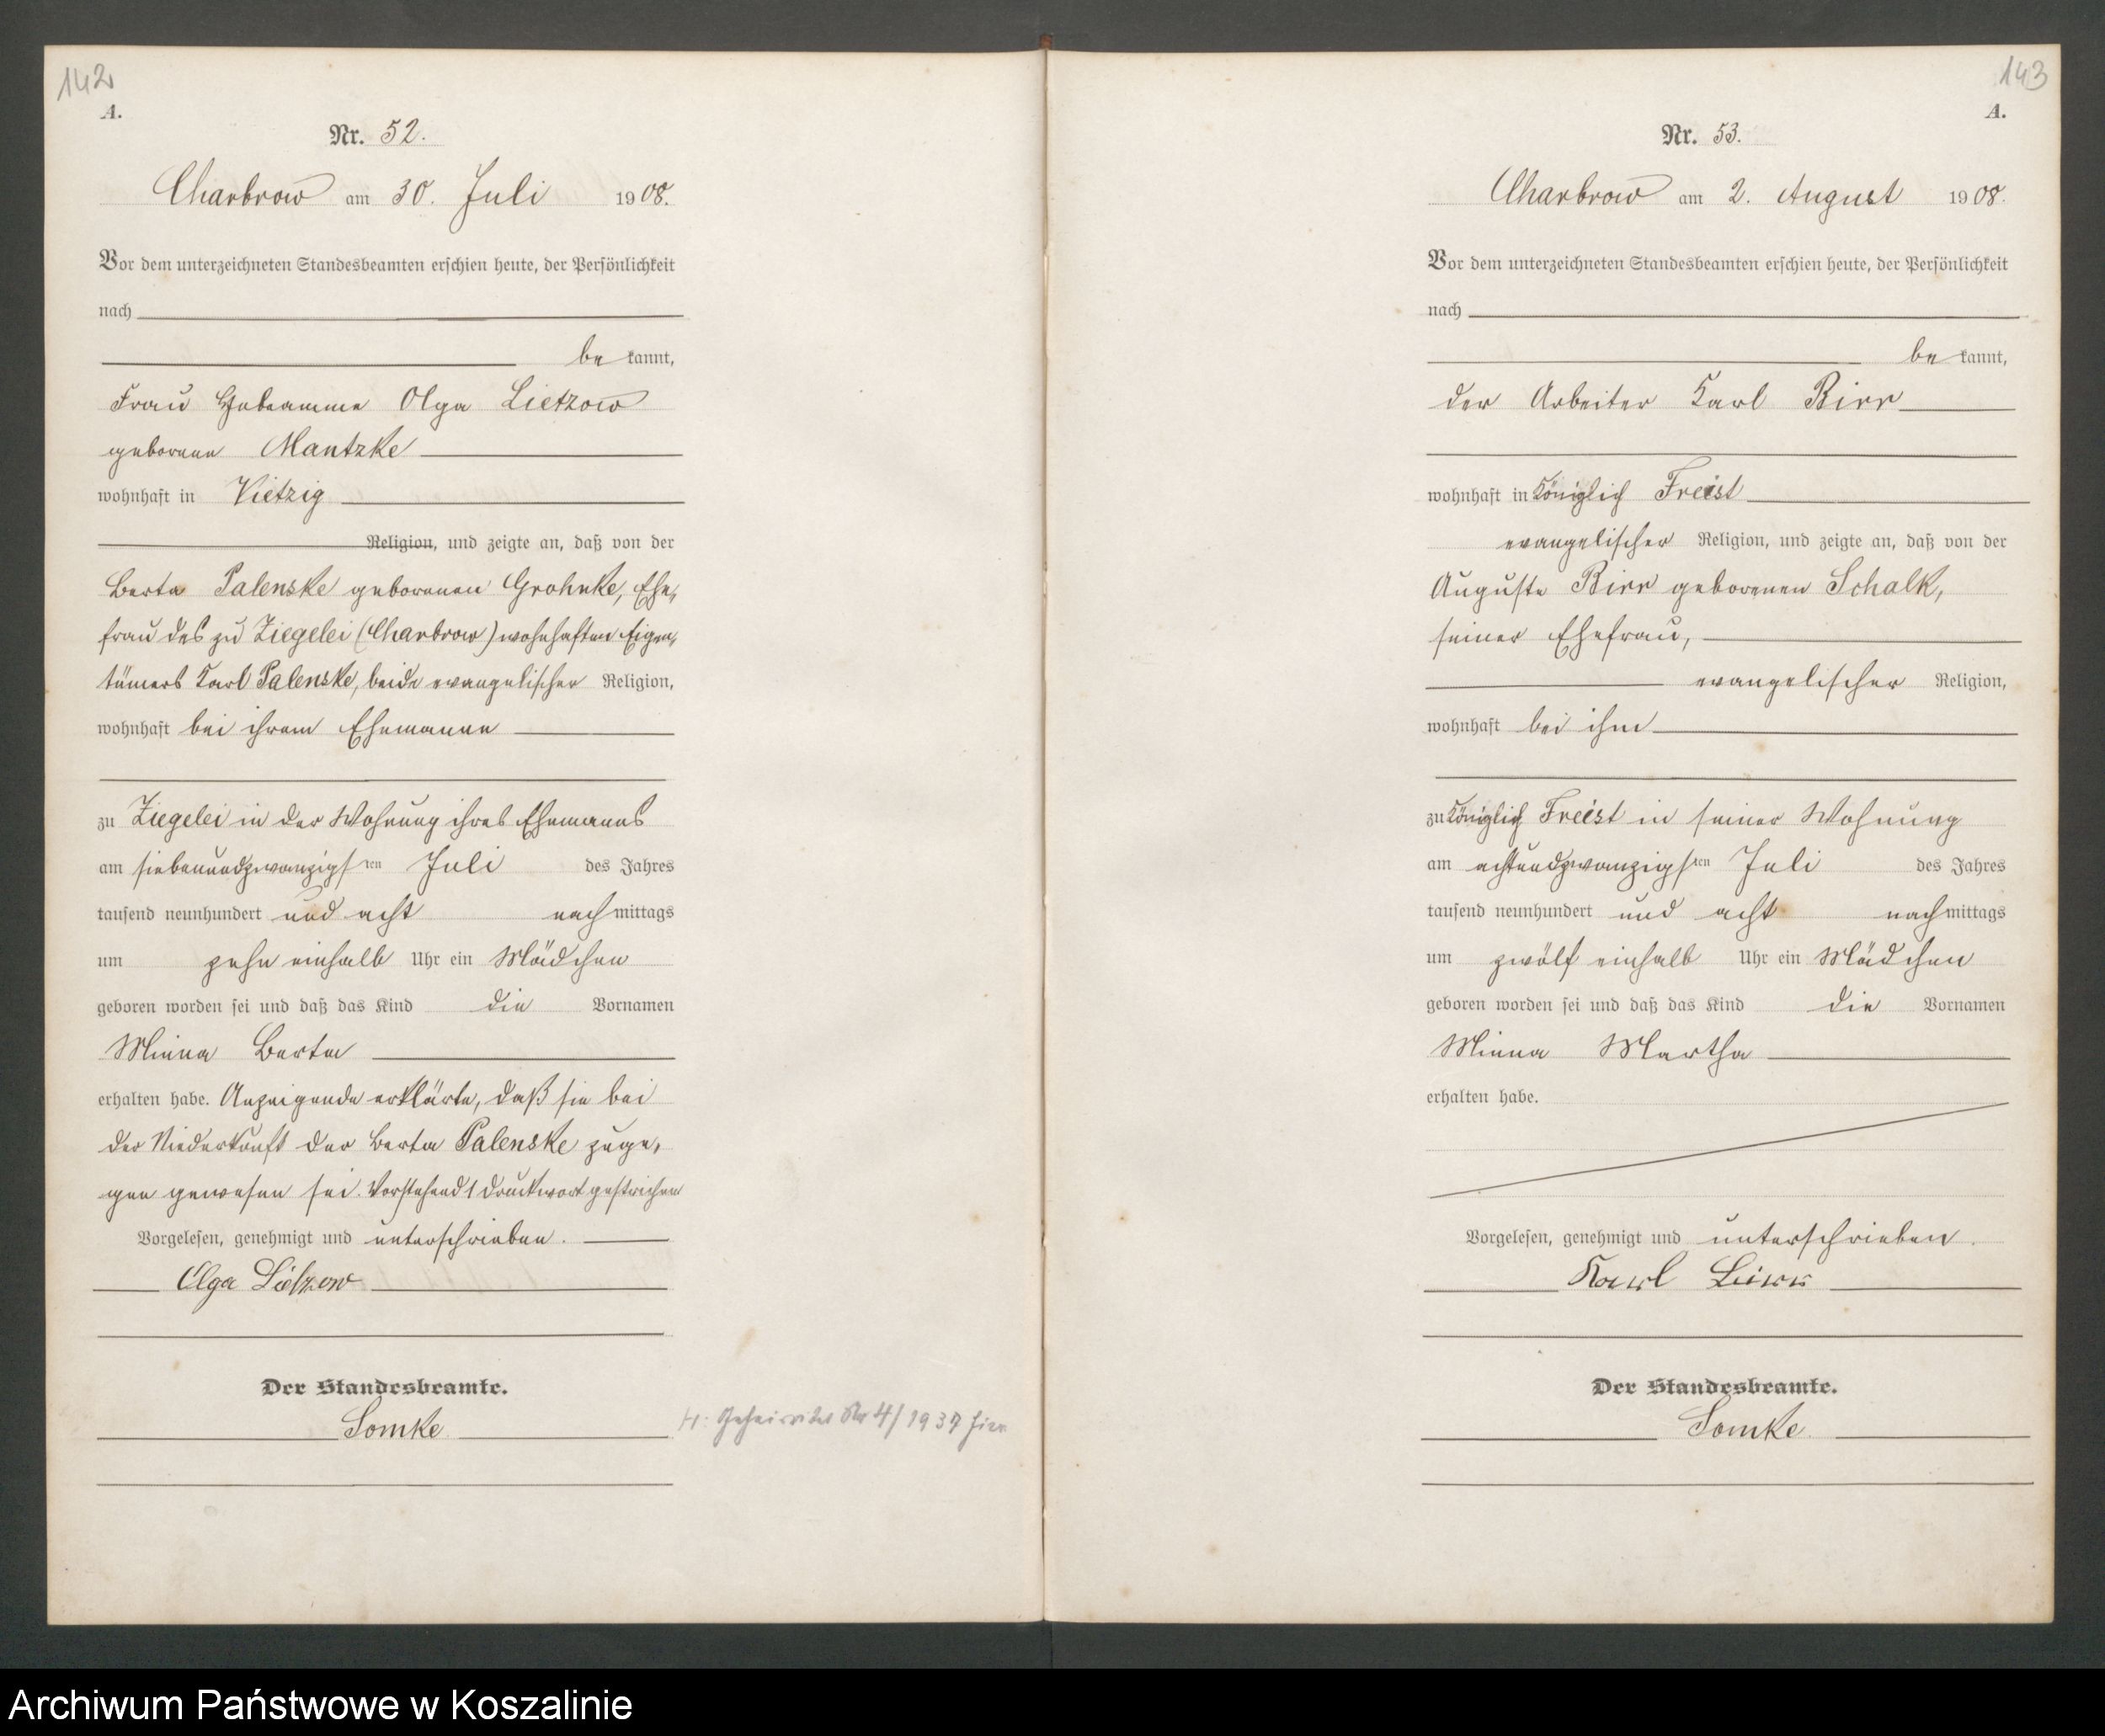 142
A.
Nr. 52.
Charbrow am 30. Juli 1908.
Vor dem unterzeichneten Standesbeamten erschien heute, der Persönlichkeit
nach
bekannt,
Frau Hebeamme Olga Lietzow
geborene Mantzke
wohnhaft in Vietzig
Religion, und zeigte an, daß von der
Berta Palenske geborenen Grohnke, Ehe-
frau des zu Ziegelei (Charbrow) wohnhaften Eigen-
tümers Karl Palenske, beide evangelischer Religion,
wohnhaft bei ihrem Ehemanne
zu Ziegelei in der Wohnung ihres Ehemanns
am siebenundzwanzigsten Juli des Jahres
tausend neunhundert und acht nachmittags
um zehn einhalb Uhr ein Mädchen
geboren worden sei und daß das Kind die Vornamen
Minna Berta
erhalten habe. Anzeigende erklärte, daß sie bei
der Niederkunft der Berta Palenske zuge-
gen gewesen sei. Vorstehend 1 Druckwort gestrichen
Vorgelesen, genehmigt und unterschrieben.
Olga Lietzow
Der Standesbeamte.
Somke
H: Geheiratet Nr 4/1937 hier
143
A.
Nr. 53.
Charbrow am 2. August 1908.
Vor dem unterzeichneten Standesbeamten erschien heute, der Persönlichkeit
nach
bekannt,
der Arbeiter Karl Birr
wohnhaft in Königlich Freist
evangelischer Religion, und zeigte an, daß von der
Auguste Birr geborenen Schalk,
seiner Ehefrau,
evangelischer Religion,
wohnhaft bei ihm
zu Königlich Freist in seiner Wohnung
am achtundzwanzigsten Juli des Jahres
tausend neunhundert und acht nachmittags
um zwölf einhalb Uhr ein Mädchen
geboren worden sei und daß das Kind die Vornamen
Minna Martha
erhalten habe.
Vorgelesen, genehmigt und unterschrieben.
Karl Birr
Der Standesbeamte.
Somke
Archiwum Państwowe w Koszalinie